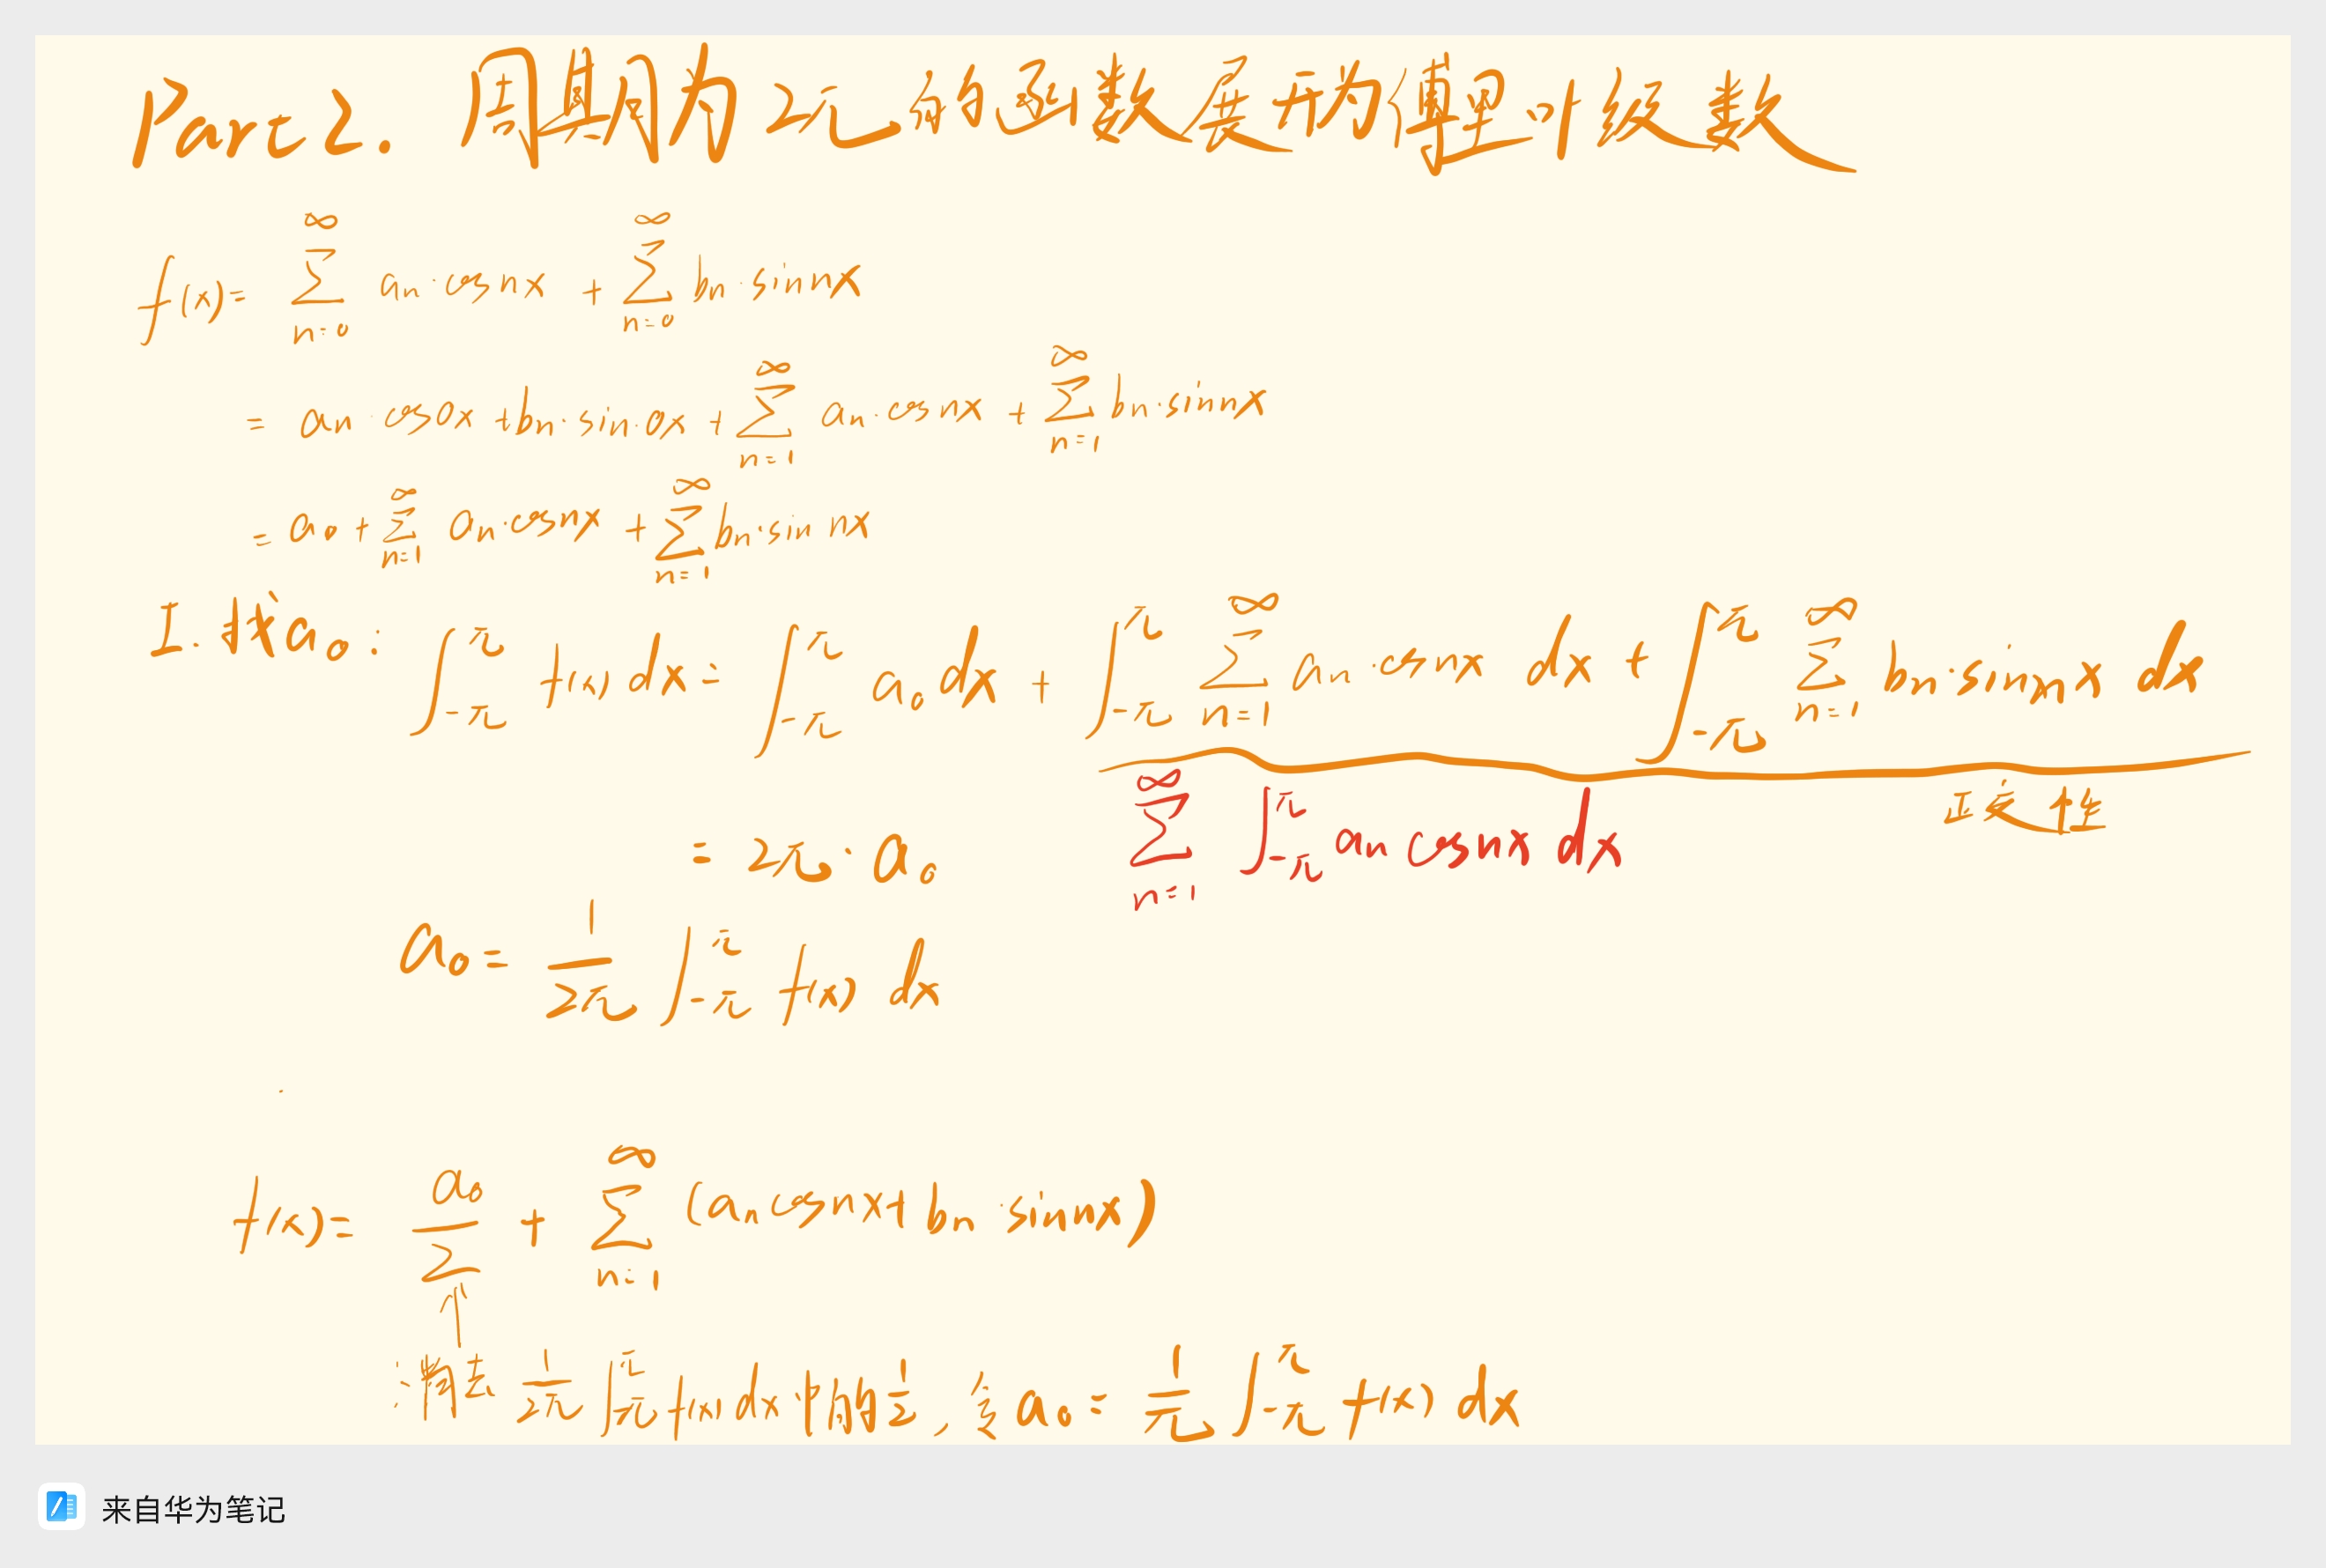 Part 2. 周期为2π的函数展开为傅里叶级数
f(x)= ∑_{n=0}^{∞} an·cosnx + ∑_{n=0}^{∞} bn·sinnx
= an·cos0x + bn·sin·0x + ∑_{n=1}^{∞} an·cosnx + ∑_{n=1}^{∞} bn·sinnx
= a0 + ∑_{n=1}^{∞} an·cosnx + ∑_{n=1}^{∞} bn·sin nx
I. 找a0: ∫_{-π}^{π} f(x) dx = ∫_{-π}^{π} a0 dx + ∫_{-π}^{π} ∑_{n=1}^{∞} an·cosnx dx + ∫_{-π}^{π} ∑_{n=1}^{∞} bn·sinnx dx
正交性
= 2π·a0
∑_{n=1}^{∞} ∫_{-π}^{π} an cosnx dx
a0 = 1/2π ∫_{-π}^{π} f(x) dx
f(x)= a0/2 + ∑_{n=1}^{∞} (an cosnx + bn·sinnx)
1/2π ∫_{-π}^{π} f(x) dx, 令 a0 = 1/π ∫_{-π}^{π} f(x) dx
来自华为笔记